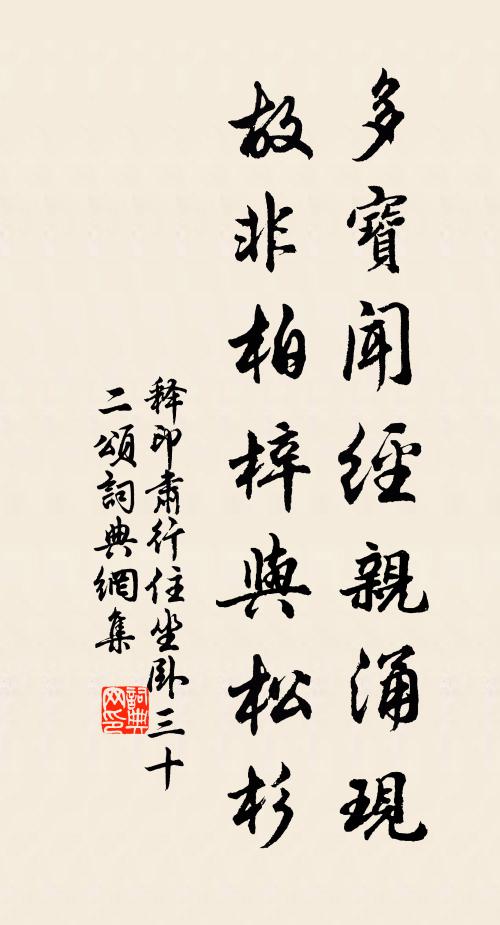 多寶聞經親涌現
故非柏梓與松杉
釋印肅行住坐臥三十
二頌詞典網集
詞典
网印